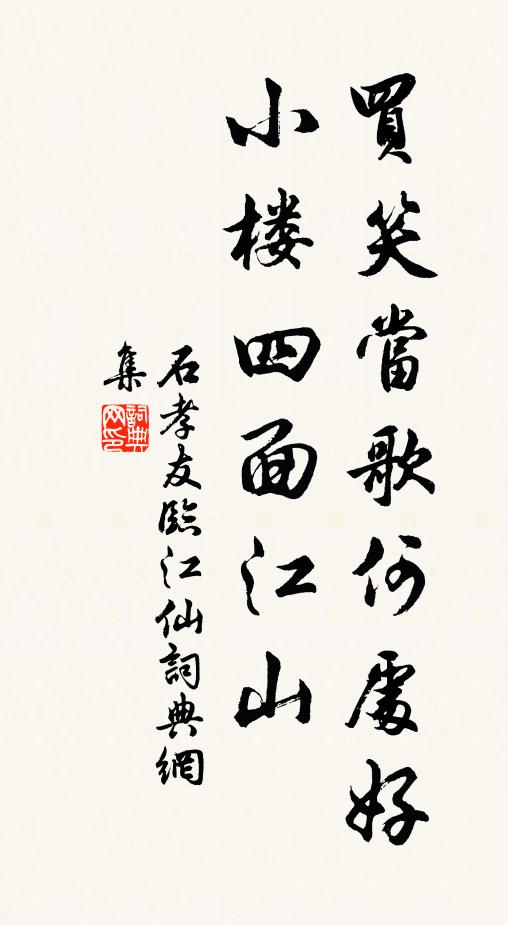 買笑當歌何處好
小楼四面江山
石孝友臨江仙詞典網
集
詞典网印